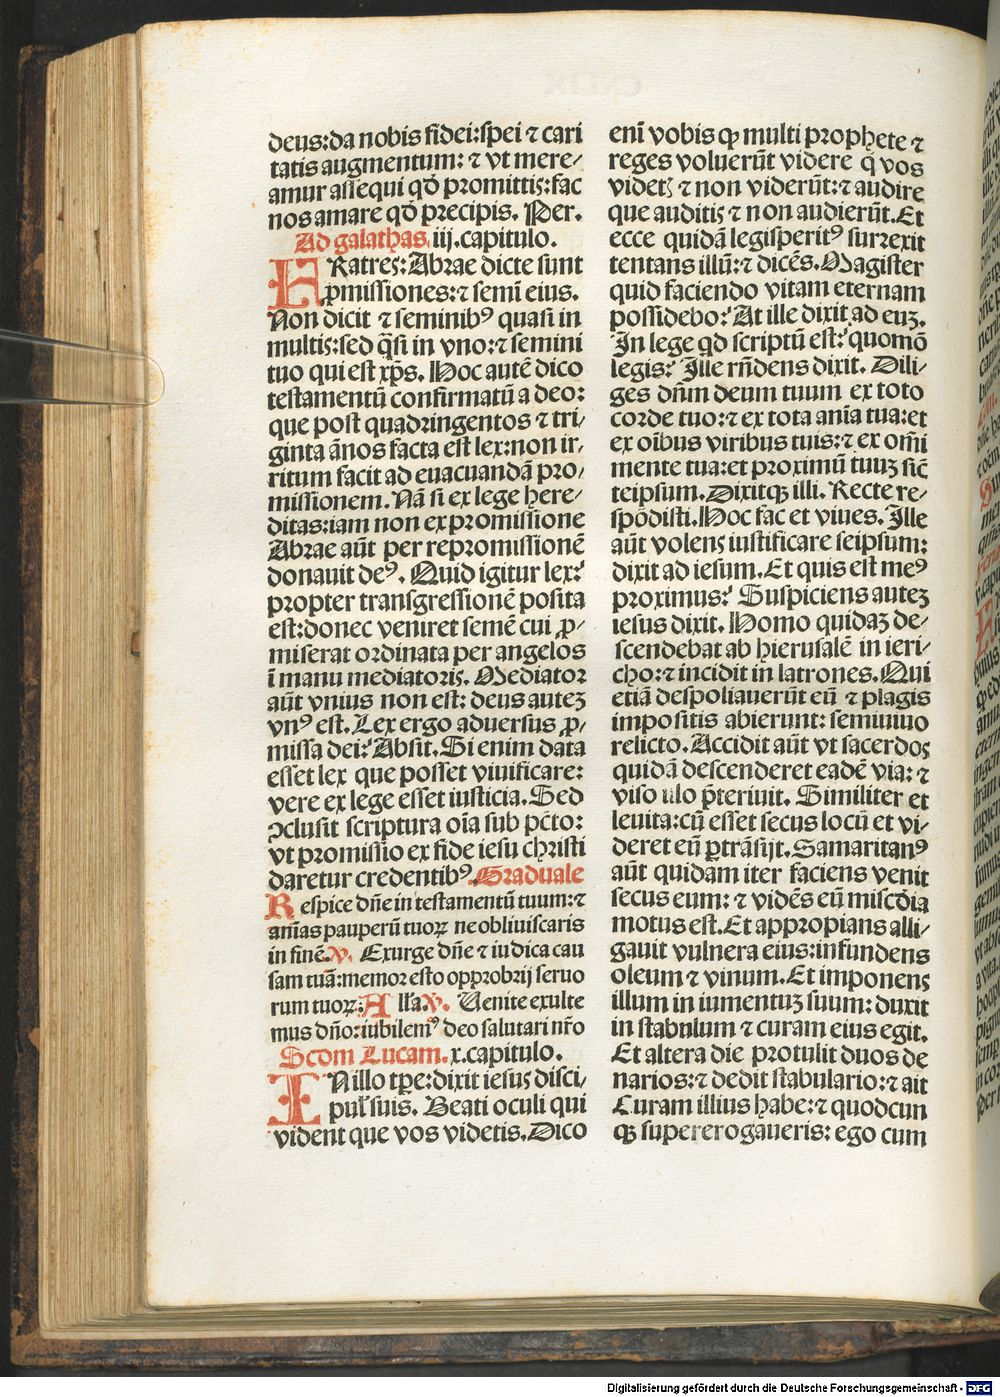 deus:da nobis fidei:spei ⁊ cari
tatis augmentum: ⁊ vt mere⸗
amur assequi qđ promittis:fac
nos amare qđ precipis. Per.
Ad galathas. iij.capitulo.
FRatres: Abrae dicte sunt
ꝓmissiones:⁊ semĩ eius.
Non dicit ⁊ seminibꝰ quasi in
multis:sed q̃si in vno:⁊ semini
tuo qui est xp̄s. Hoc autē dico
testamentū confirmatū a deo:
que post quadringentos ⁊ tri⸗
ginta ãnos facta est lex:non ir⸗
ritum facit ad euacuandā pro⸗
missionem. Nā si ex lege here⸗
ditas:iam non ex promissione
Abrae aūt per repromissionē
donauit deꝰ. Quid igitur lex?
propter transgressionē posita
est:donec veniret semē cui ꝓ⸗
miserat ordinata per angelos
ī manu mediatoris. Mediator
aūt vnius non est: deus auteꝫ
vnꝰ est. Lex ergo aduersus ꝓ⸗
missa dei? Absit. Si enim data
esset lex que posset viuificare:
vere ex lege esset iusticia. Sed
ↄclusit scriptura oīa sub pctō:
vt promissio ex fide iesu christi
daretur credentibꝰ. Graduale
Respice dn̄e in testamentū tuum:⁊
aīas pauperū tuoꝝ ne obliuiscaris
in finē. v. Exurge dn̄e ⁊ iudica cau
sam tuā:memor esto opprobrij seruo
rum tuoꝝ: All'a. v. Uenite exulte
mus dn̄o:iubilemꝰ deo salutari nr̄o
Scdm Lucam. x.capitulo.
IN illo tꝑe:dixit iesus disci⸗
pul' suis. Beati oculi qui
vident que vos videtis. Dico
enī vobis ꝙ multi prophete ⁊
reges voluerūt videre q̄ vos
videtꝭ ⁊ non viderūt:⁊ audire
que auditis ⁊ non audierūt. Et
ecce quidā legisperitꝰ surrexit
tentans illū:⁊ dicēs. Magister
quid faciendo vitam eternam
possidebo? At ille dixit ad euꝫ.
In lege qd scriptū est? quomō
legis? Ille rn̄dens dixit. Dili⸗
ges dn̄m deum tuum ex toto
corde tuo:⁊ ex tota aīa tua:et
ex oībus viribus tuis:⁊ ex om̄i
mente tua:et proximū tuuꝫ sic̄
teipsum. Dixitqꝫ illi. Recte re⸗
spōdisti. Hoc fac et viues. Ille
aūt volens iustificare seipsum:
dixit ad iesum. Et quis est meꝰ
proximus? Suspiciens auteꝫ
iesus dixit. Homo quidaꝫ de⸗
scendebat ab hierusalē in ieri⸗
cho:⁊ incidit in latrones. Qui
etiā despoliauerūt eū ⁊ plagis
impositis abierunt: semiuiuo
relicto. Accidit aūt vt sacerdos
quidā descenderet eadē via: ⁊
viso illo p̄teriuit. Similiter et
leuita:cū esset secus locū et vi⸗
deret eū ꝑtrāsijt. Samaritanꝰ
aūt quidam iter faciens venit
secus eum: ⁊ vidēs eū mis̄cdia
motus est. Et appropians alli⸗
gauit vulnera eius:infundens
oleum ⁊ vinum. Et imponens
illum in iumentuꝫ suum: duxit
in stabulum ⁊ curam eius egit.
Et altera die protulit duos de
narios:⁊ dedit stabulario:⁊ ait
Curam illius habe:⁊ quodcun
qꝫ supererogaueris: ego cum
Digitalisierung gefördert durch die Deutsche Forschungsgemeinschaft - DFG